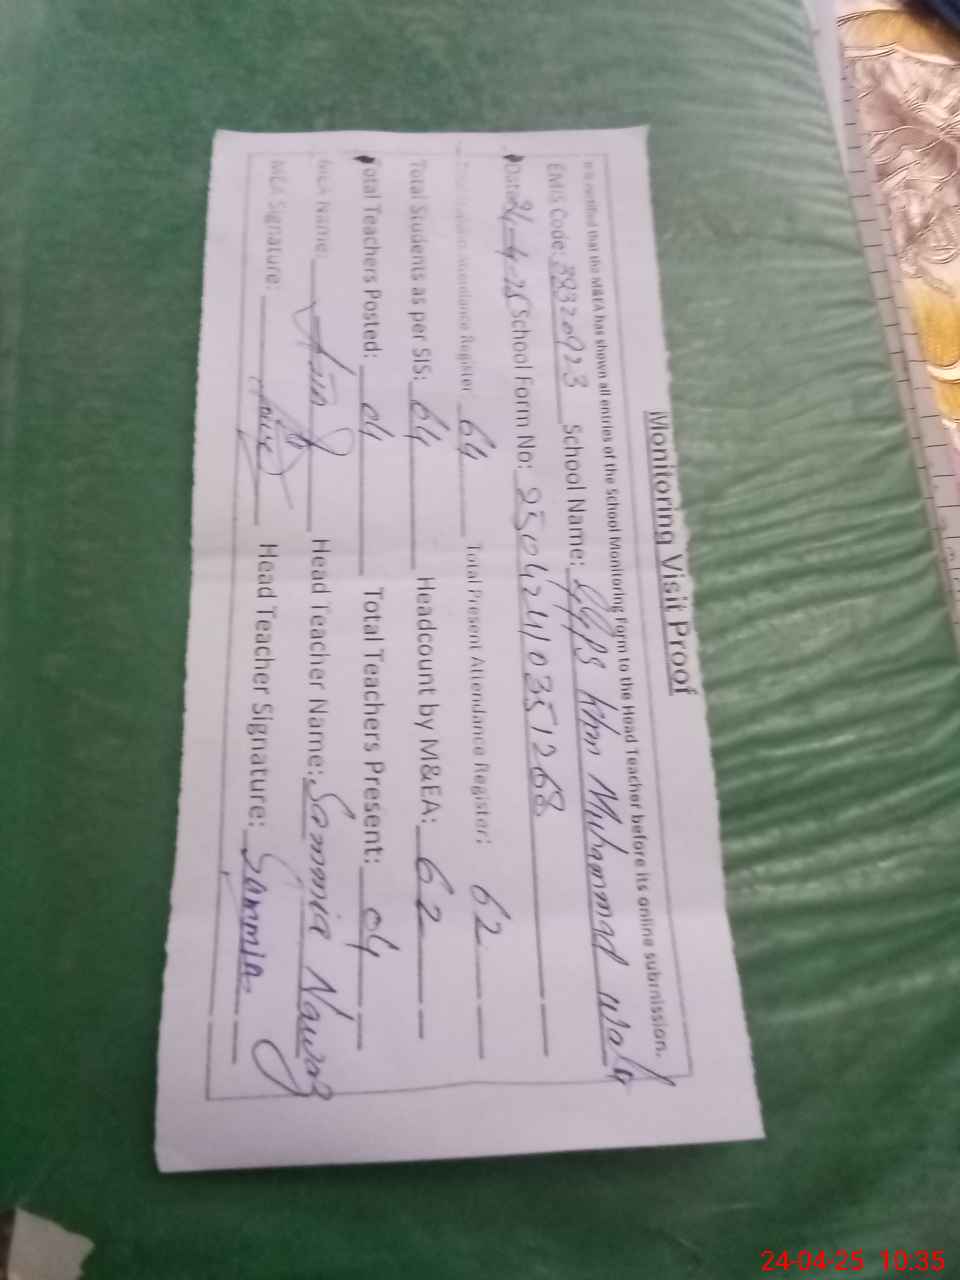 Monitoring Visit Proof
It is certified that the M&EA has shown all entries of the School Monitoring Form to the Head Teacher before its online submission.
EMIS Code: 39320923 School Name: GGPS Khn Muhammad wala
Date: 24-4-25 School Form No: 250424103351268
Attendance Register 64 Total Present Attendance Register: 62
Total Students as per SIS: 64 Headcount by M&EA: 62
Total Teachers Posted: 04 Total Teachers Present: 04
MEA Name: Head Teacher Name: Sammia Nawaz
MEA Signature: Head Teacher Signature: Sammia
24-04-25 10:35